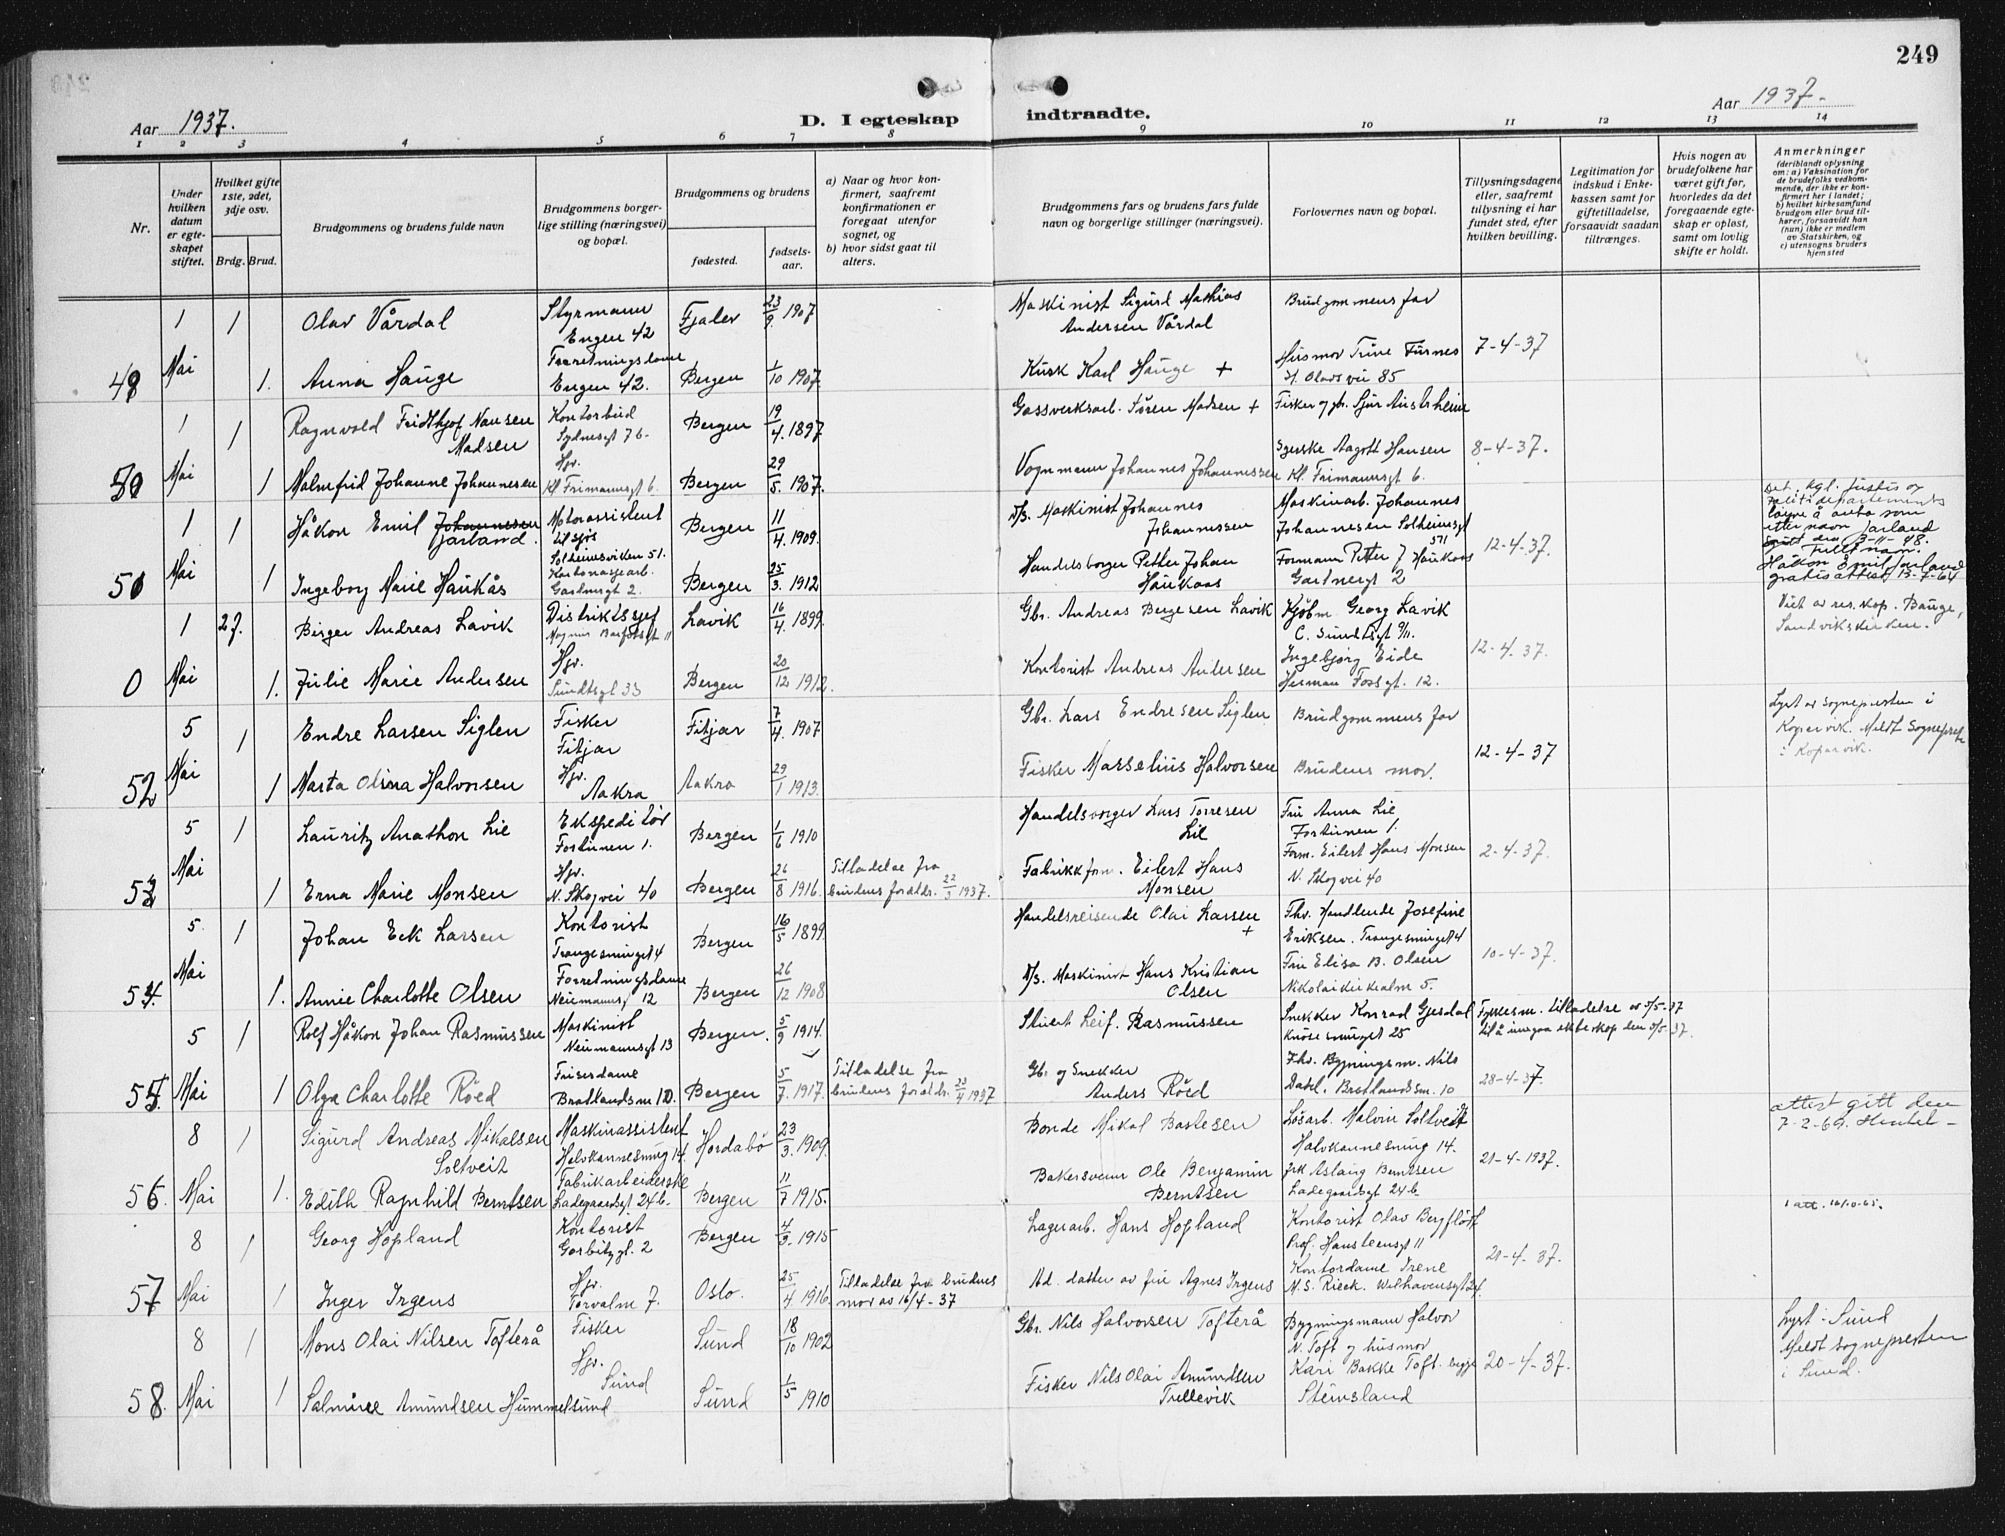 249
Aar 1937.
D. I egteskap indtraadte.
Aar 1937.
1 2 3 4 5 6 7 8 9 10 11 12 13 14
Nr.
Under hvilken datum er egteskapet stiftet.
Hvilket gifte 1ste, 2det, 3dje osv.
Brdg. Brud.
Brudgommens og brudens fulde navn
Brudgommens borgerlige stilling (næringsvei) og bopæl.
Brudgommens og brudens
fødested.
fødselsaar.
a) Naar og hvor konfirmert, saafremt konfirmationen er foregaat utenfor sognet, og
b) hvor sidst gaat til alters.
Brudgommens fars og brudens fars fulde navn og borgerlige stillinger (næringsvei).
Forlovernes navn og bopæl.
Tillysningsdagene eller, saafremt tillysning ei har fundet sted, efter hvilken bevilling.
Legitimation for indskud i Enkekassen samt for giftetilladelse, forsaavidt saadan tiltrænges.
Hvis nogen av brudefolkene har været gift før, hvorledes da det foregaaende egteskap er opløst, samt om lovlig skifte er holdt.
Anmerkninger
(deriblandt oplysning om: a) Vaksination for de brudefolks vedkommende, der ikke er konfirmert her i landet; b) hvilket kirkesamfund brudgom eller brud tilhører, forsaavidt han (hun) ikke er medlem av Statskirken, og c) utensogns bruders hjemsted
1 1 Olav Vårdal Styrmann Engen 42 Fjaler 23/9 1907 Maskinist Sigurd Mathias Andersen Vårdal Brudgommens far
49 Mai 1. Anna Hauge Forretningsdame Engen 42. Bergen 1/10 1907 Kusk Karl Hauge + Husmor Trine Furnes St. Olavs vei 85 7-4-37
1 1 Ragnvald Fridthjof Nansen Madsen Kontorbud Sydnesgt 76 Bergen 19/4 1897 Gassverksarb. Søren Madsen + Fisker og gbr. Sjur Austrheim
50 Mai 1 Malmfrid Johanne Johannesen Hjv. Kl. Frimannsgt 6. Bergen 29/5 1907. Vognmann Johannes Johannessen Aagott Hansen Kl. Frimannsgt 6. 8-4-37.
1 1 Håkon Emil Johannessen Jarland. Motorassistent tilsjøs Solheimsviken 51. Bergen 11/4 1909. D/s. Maskinist Johannes Johannessen Maskinarb. Johannes Johannesen Solheimsgt 51
Det. kgl. Justis og Politidepartements å anta som etternavn Jarland 3-11-48. Fullt navn: Håkon Emil Jarland gratisattest 13-7-64
51 Mai 1 Ingeborg Marie Haukås Kartonasjearb. Gartnergt 2. Bergen 25/3. 1912 Handelsborger Petter Johan Haukaas Formann Petter J Haukaas Gartnergt 2 12-4-37.
1 2. Birger Andreas Lavik Distriktssjef Magnus Barfotsgt 11 Lavik 16/4. 1899. Gbr. Andreas Bergesen Lavik Kjøbm. Georg Lavik C. Sundtsgt 9/11. Viet av res. kap. Bauge, Sandvikskirken.
0 Mai 1. Julie Marie Andersen Hjv. Sundtsgt 33 Bergen 20/12 1912. Kontorist Andreas Andersen Ingebjørg Eide Herman Fossgt. 12. 12-4.37.
5 1 Endre Larsen Siglen Fisker Fitjar Fitjar 7/4. 1907 Gbr. Lars Endresen Siglen Brudgommens far Lyst av sognepresten i Kopervik. Meldt sognepresten i Kopervik.
52 Mai 1 Marta Olina Halvorsen Hjv. Aakra Aakra 29/1 1913. Fisker Masselius Halvorsen Brudens mor. 12-4-37
5 1 Lauritz Anathon Lie Ekspeditør Fortunen 1. Bergen 1/6 1910 Handelsborger Lars Torresen Lie Fru Anna Lie Fortunen 1.
53 Mai 1 Erna Marie Monsen Hjv. N. Skogvei 40 Bergen 26/8 1916. Tilladelse fra brudens foreldr. 22/3 1937. Fabrikkform. Eilert Hans Monsen Form. Eilert Hans Monsen N. Skogvei 40 2-4-37.
5. 1 Johan Eek Larsen Kontorist Trangesmuget 4 Bergen 16/5 1899. Handelsreisende Olai Larsen + Fhv. Handlende Josefine Eriksen. Trangesmuget 4
54. Mai 1. Annie Charlotte Olsen Forretningsdame Neumannsgt 12 Bergen 26/12 1908 D/s. Maskinist Hans Kristian Olsen Fru Elisa B. Olsen Nikolaikirkealm 5. 10-4-37.
5 1 Rolf Håkon Johan Rasmussen Maskinist Neumannsgt 13 Bergen. 5/9 1914. Stuert Leif. Rasmussen Snekker Konrad Gjesdal Knøsesmuget 25 Fylkesm. tilladelse av 5/5-37 til å inngaa ekteskap den 5/5-37.
55. Mai 1 Olga Charlotte Røed Friserdame Bratlandsm 10. Bergen 5/7. 1917. Tilladelse fra brudens foreldr. 23/4 1937 Gbr og Snekker Anders Røed Fhv. Bygningsm. Nils Dahl. Bratlandsm. 10 28-4-37.
8 1 Sigurd Andreas Mikalsen Soltveit Maskinassistent Halvkannesmug 14. Hordabø 23/3. 1909. Bonde Mikal Bastesen Løsarb. Malvin Soltvedt Halvkannesmug 14. attest gitt den 7-2-69.
56. Mai 1. Edith Ragnhild Berntsen Fabrikarbeiderske Ladegaardsgt 24b. Bergen 11/7 1915. Bakersvenn Ole Benjamin Berntsen frk Aslaug Berntsen Ladegaardsgt 24b. 21-4-1937. 1 att. 16/10-65.
8 1 Georg Hopland Kontorist Gorbitzgt. 2 Bergen 4/3. 1915 Lagerarb. Hans Hopland Kontorist Olav Bergfløtt Prof. Hansteensgt 11
57 Mai 1 Inger Irgens Hjv. Torvalm 7. Oslo. 25/4 1916. Tilladelse fra brudens mor av 16/4-37 Ad. datter av fru Agnes Irgens Kontordame Irene M.S. Rieck. Welhavensgt 21-4-37.
8 1 Mons Olai Nilsen Tofterå Fisker Sund 18/10 1902 Gbr. Nils Halvorsen Tofterå Bygningsmann Halvor N. Toft og husmor Lyst i Sund Meldt sognepresten i Sund.
58 Mai 1 Salmine Amundsen Hummelsund Hjv. Sund Sund 1/5 1910 Fisker Nils Olai Amundsen Trellevik Kari Bakke Toft. begge Steinsland 20-4-37.